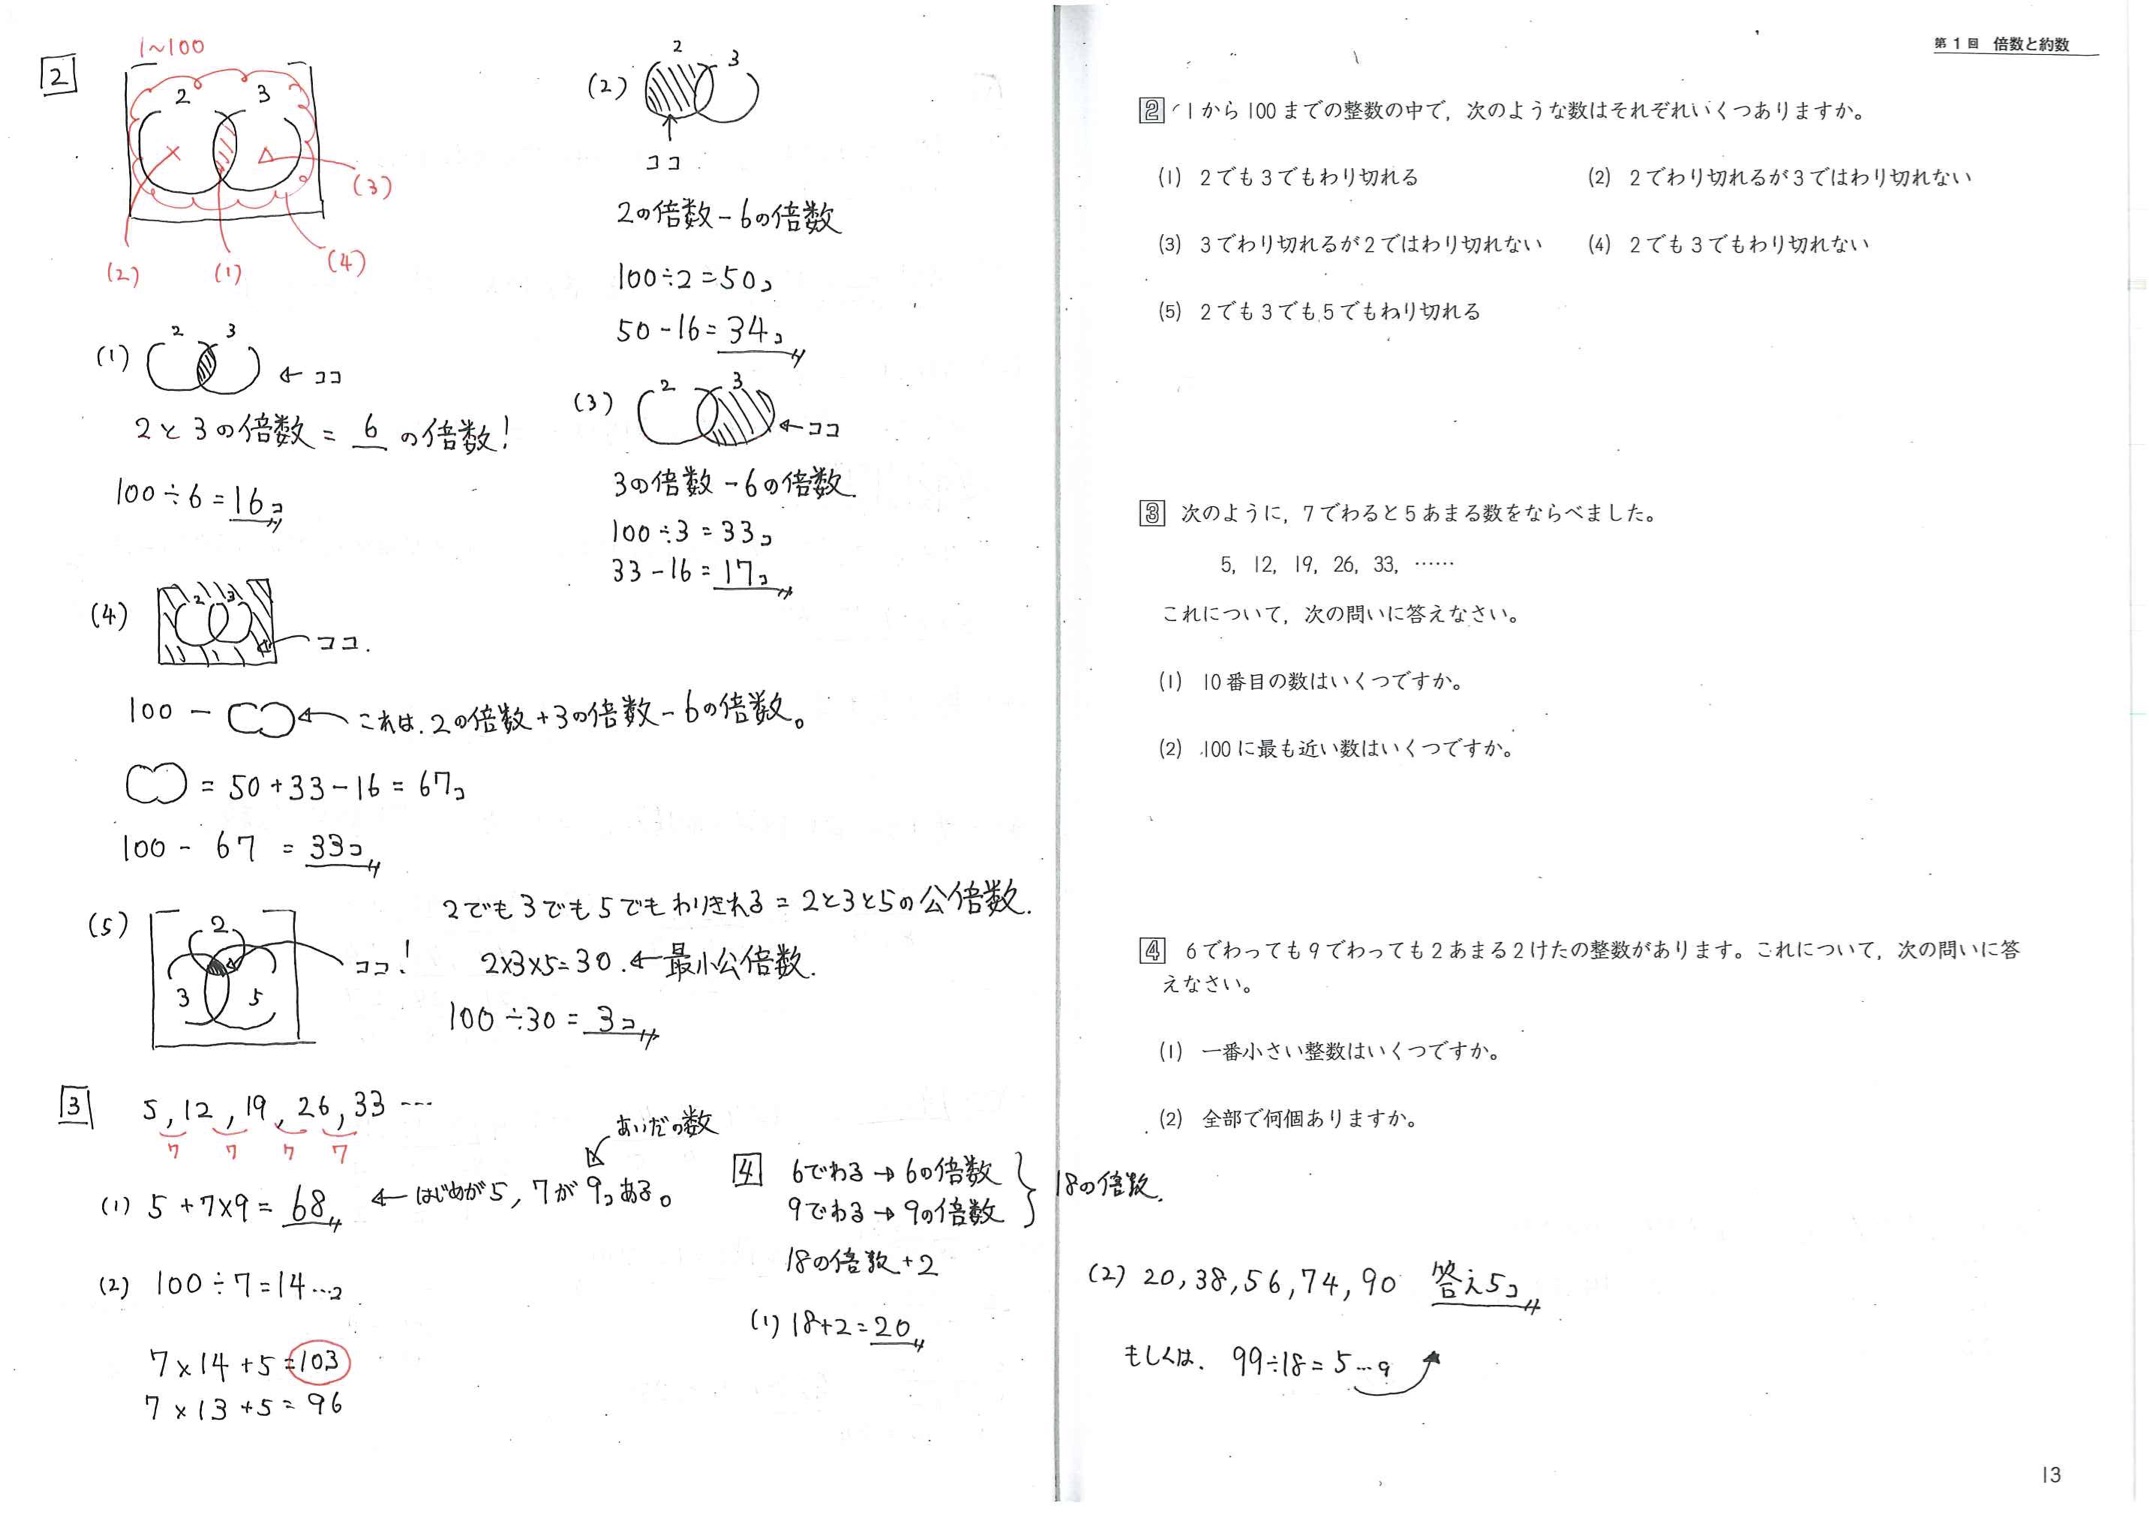 2
1~100
2 3
(3)
(2) (1) (4)
(1) 2 3
← ココ
2と3の倍数 = 6 の倍数!
100÷6=16コ
(2) 2 3
ココ
2の倍数-6の倍数
100÷2=50コ
50-16=34コ
(3) 2 3
←ココ
3の倍数-6の倍数.
100÷3=33コ
33-16=17コ
(4) 2 3
ココ.
100 - ← これは.2の倍数+3の倍数-6の倍数。
= 50+33-16=67コ
100-67 = 33コ
(5) 2
3 5
ココ!
2でも3でも5でもわりきれる=2と3と5の公倍数.
2×3×5=30.←最小公倍数.
100÷30=3コ
3 5,12,19,26,33…
7 7 7 7
あいだの数
(1) 5+7×9=68 ←はじめが5,7が9コある。
(2) 100÷7=14…2
7×14+5=103
7×13+5=96
4 6でわる→6の倍数
9でわる→9の倍数
18の倍数.
18の倍数+2
(1) 18+2=20
(2) 20,38,56,74,90 答え5コ
もしくは. 99÷18=5…9
第1回 倍数と約数
2 1から100までの整数の中で,次のような数はそれぞれいくつありますか。
(1) 2でも3でもわり切れる (2) 2でわり切れるが3ではわり切れない
(3) 3でわり切れるが2ではわり切れない (4) 2でも3でもわり切れない
(5) 2でも3でも5でもわり切れる
3 次のように,7でわると5あまる数をならべました。
5, 12, 19, 26, 33, ……
これについて,次の問いに答えなさい。
(1) 10番目の数はいくつですか。
(2) 100に最も近い数はいくつですか。
4 6でわっても9でわっても2あまる2けたの整数があります。これについて,次の問いに答
えなさい。
(1) 一番小さい整数はいくつですか。
(2) 全部で何個ありますか。
13